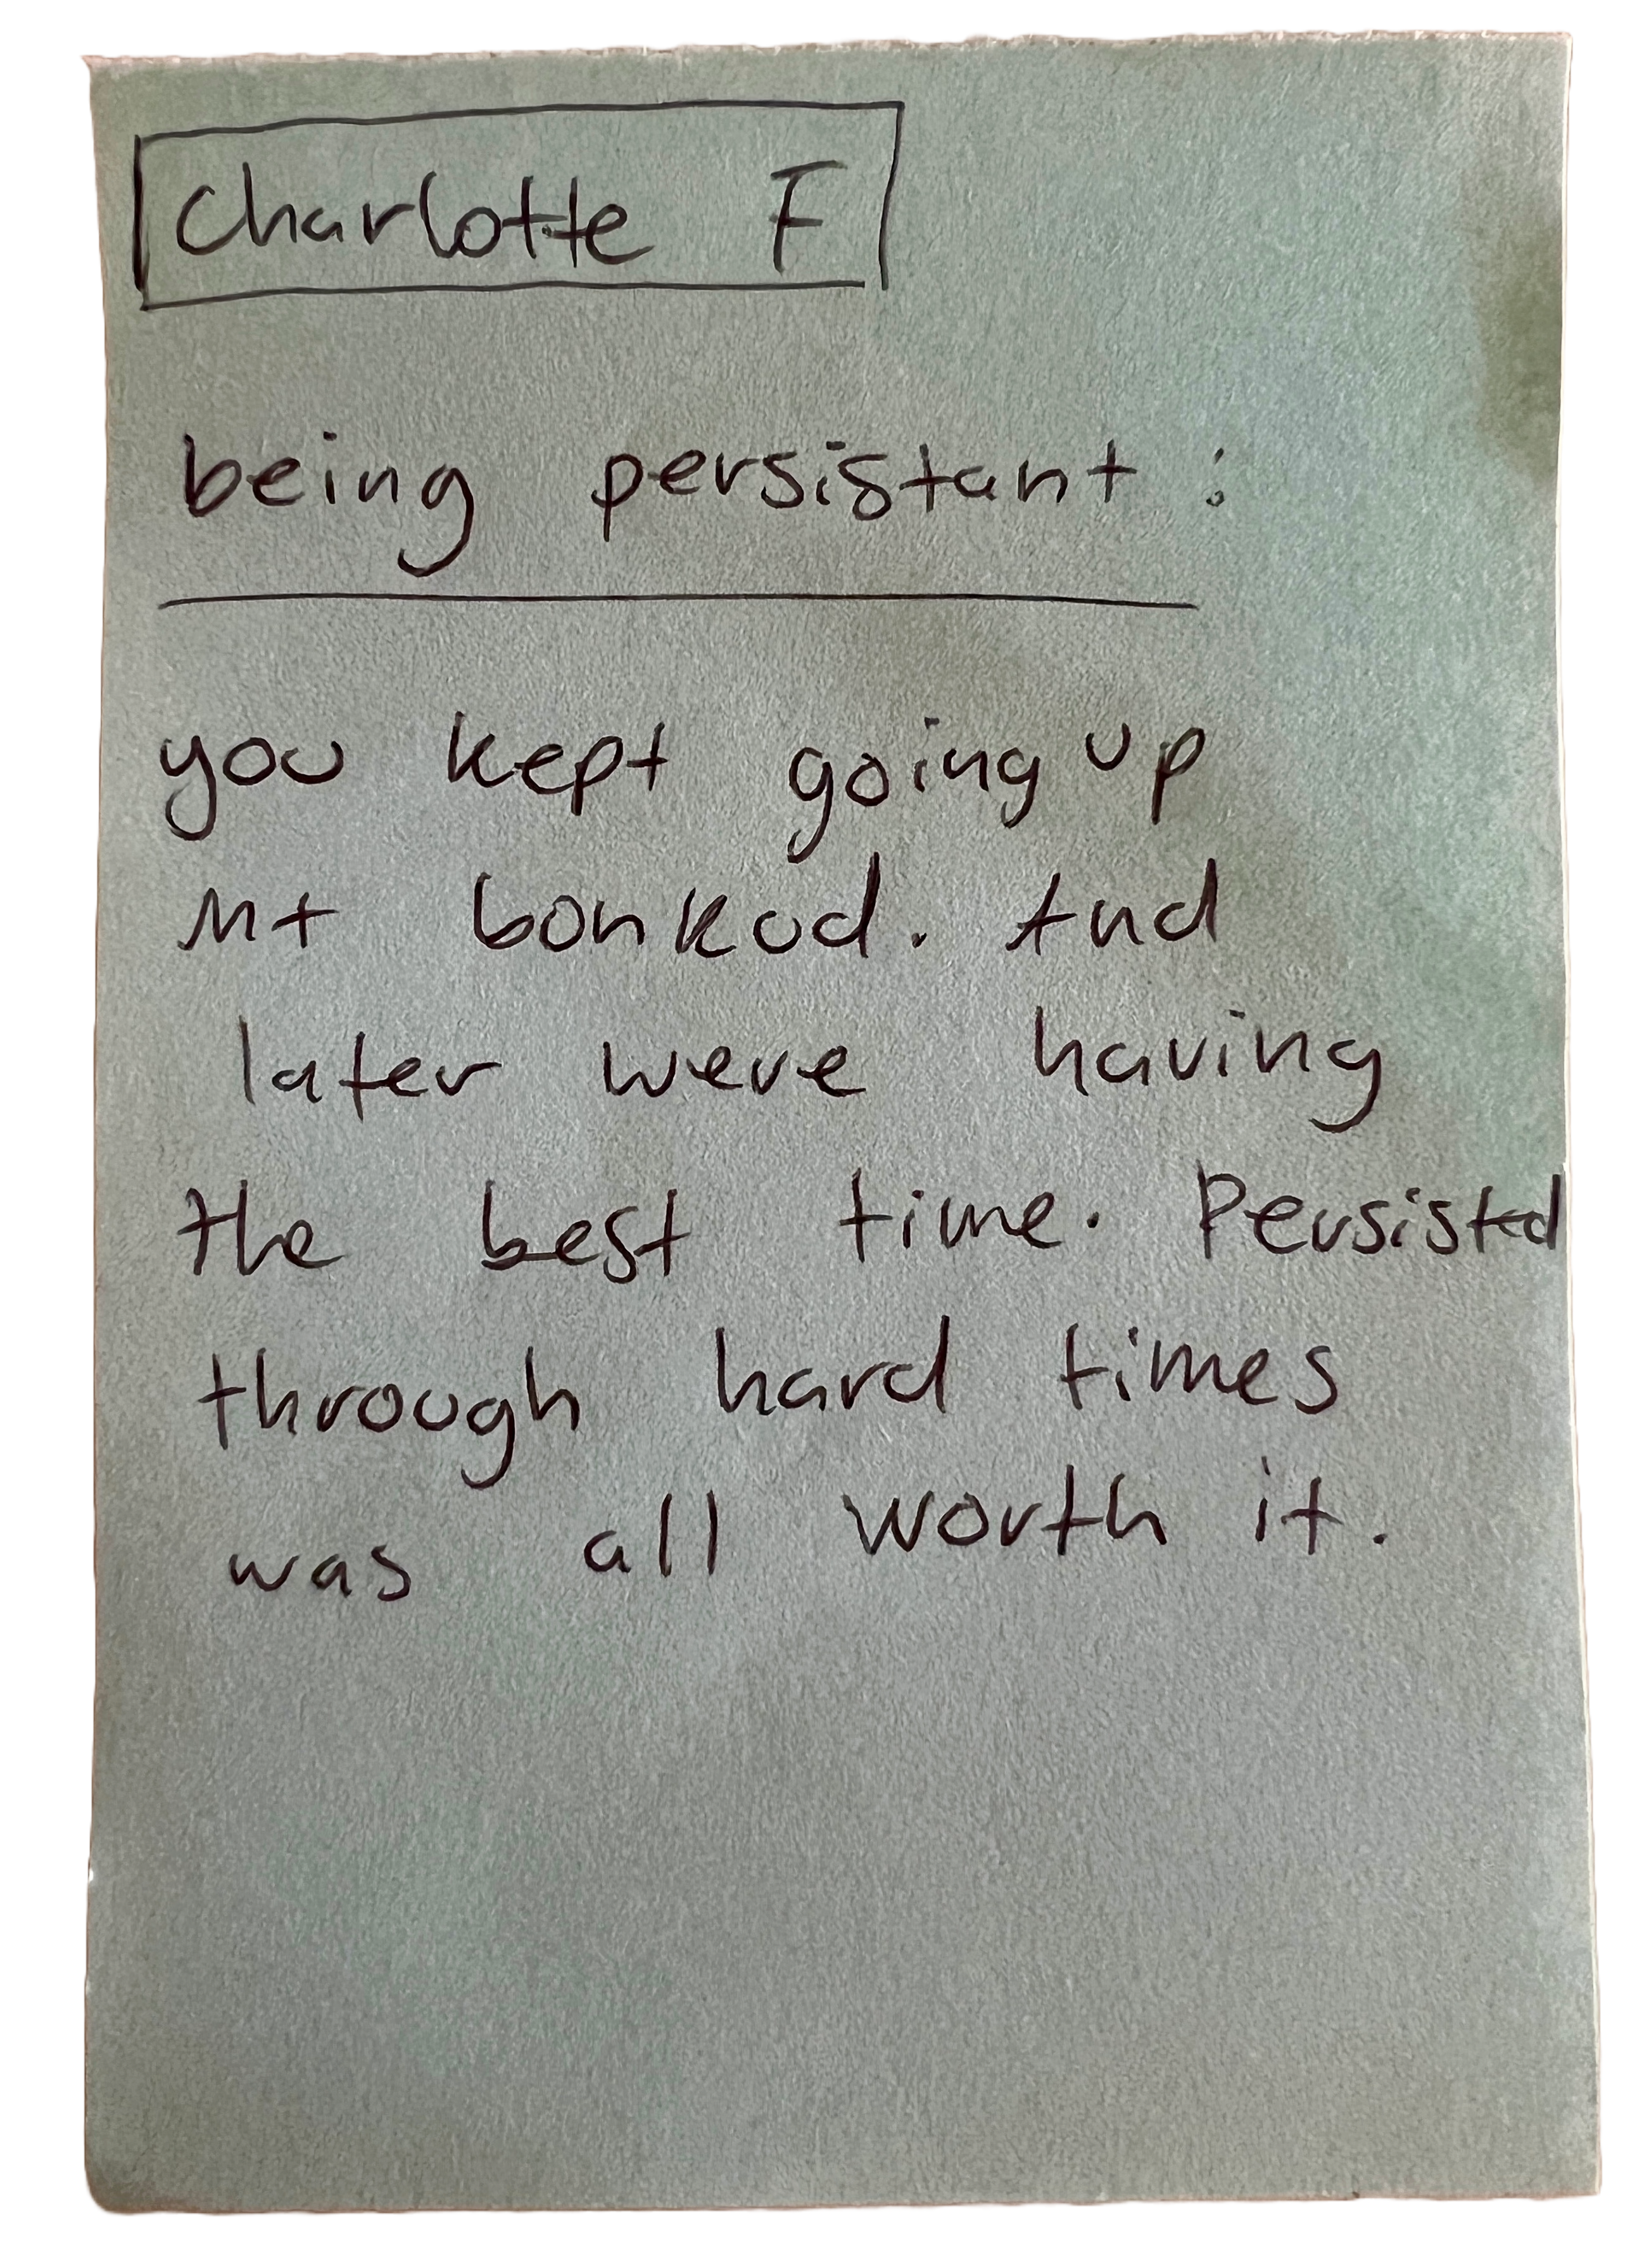 Charlotte F
being persistant :
you kept going up
Mt bonkud. And
later were having
the best time. Persisted
through hard times
was all worth it.